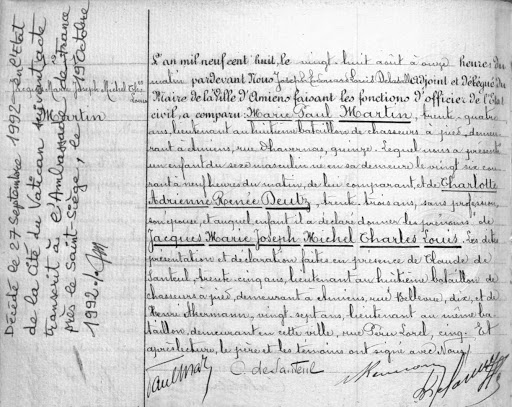 L'an mil neuf cent huit, le vingt huit août à onze heures du
matin pardevant Nous Joseph Louis Adjoint et Délégué du
Maire de la Ville d'Amiens faisant les fonctions d'officier de l'État
civil, a comparu Marie Paul Martin, trente quatre
ans, lieutenant au huitième bataillon de chasseurs à pied, demeu-
rant à Amiens, rue Dhavernas, quinze. Lequel nous a présenté
un enfant du sexe masculin né en sa demeure le vingt six cou-
rant à neuf heures du matin, de lui comparant, et de Charlotte
Adrienne Renée Deutz, trente trois ans, sans profession,
son épouse, et auquel enfant il a déclaré donner les prénoms de
Jacques Marie Joseph Michel Charles Louis. Les dites
présentation et déclaration faites en présence de Claude de
Santeul, trente cinq ans, lieutenant au huitième bataillon de
chasseurs à pied, demeurant à Amiens, rue Bellevue, dix, et de
Henri Khermann, vingt sept ans, lieutenant au même ba-
taillon, demeurant en cette ville, rue cinq. Et
après lecture, le père et les témoins ont signé avec Nous
Paul Martin C de Santeul
Marie Joseph Michel Chles
Louis
Martin
Décédé le 27 Septembre 1992 en l'Etat
de la Cité du Vatican suivant acte
transcrit à l'Ambassade de France
près le Saint-Siège, le 19 Octobre
1992 ./.